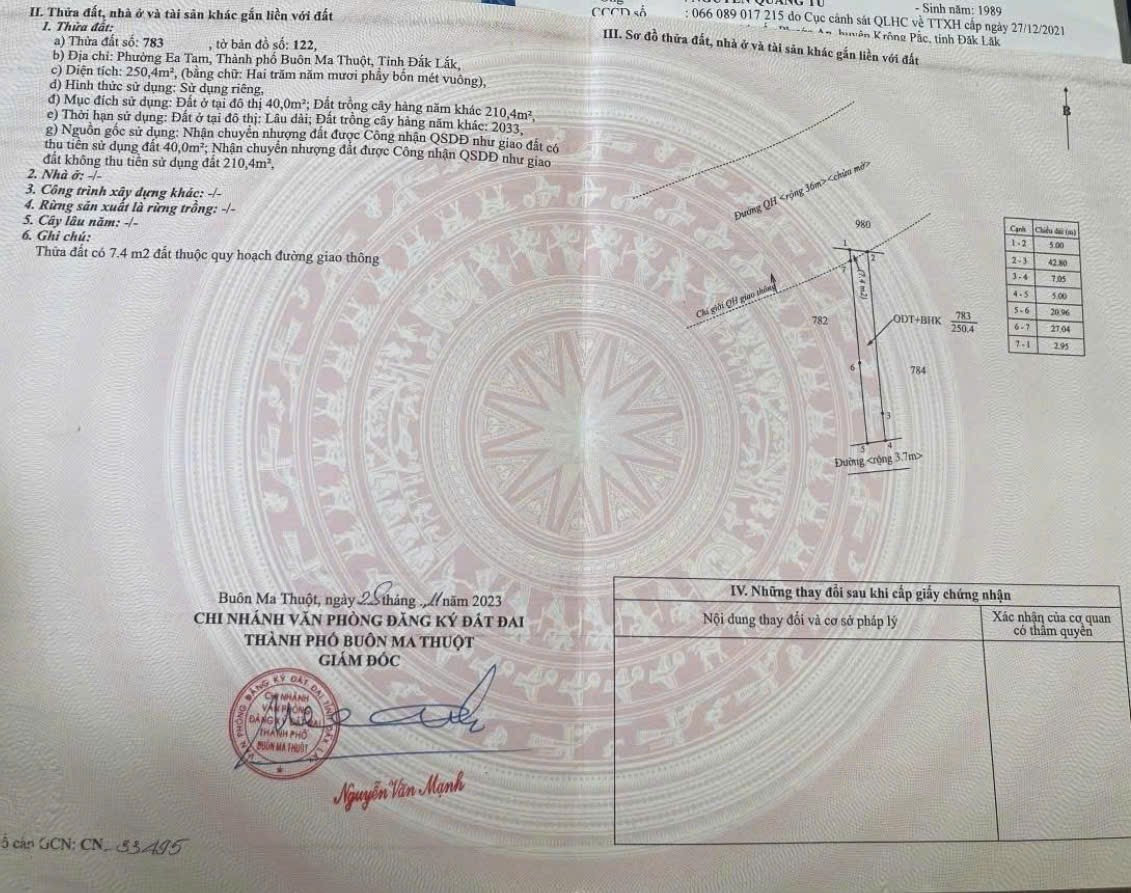 - Sinh năm: 1989
CCCD số : 066 089 017 215 do Cục cảnh sát QLHC về TTXH cấp ngày 27/12/2021
huyện Krông Pắc, tỉnh Đắk Lắk
II. Thửa đất, nhà ở và tài sản khác gắn liền với đất
1. Thửa đất:
a) Thửa đất số: 783 , tờ bản đồ số: 122,
b) Địa chỉ: Phường Ea Tam, Thành phố Buôn Ma Thuột, Tỉnh Đắk Lắk,
c) Diện tích: 250,4m², (bằng chữ: Hai trăm năm mươi phẩy bốn mét vuông),
d) Hình thức sử dụng: Sử dụng riêng,
đ) Mục đích sử dụng: Đất ở tại đô thị 40,0m²; Đất trồng cây hàng năm khác 210,4m²,
e) Thời hạn sử dụng: Đất ở tại đô thị: Lâu dài; Đất trồng cây hàng năm khác: 2033,
g) Nguồn gốc sử dụng: Nhận chuyển nhượng đất được Công nhận QSDĐ như giao đất có
thu tiền sử dụng đất 40,0m²; Nhận chuyển nhượng đất được Công nhận QSDĐ như giao
đất không thu tiền sử dụng đất 210,4m²,
2. Nhà ở: -/-
3. Công trình xây dựng khác: -/-
4. Rừng sản xuất là rừng trồng: -/-
5. Cây lâu năm: -/-
6. Ghi chú:
Thửa đất có 7.4 m2 đất thuộc quy hoạch đường giao thông
Buôn Ma Thuột, ngày 28 tháng 11 năm 2023
CHI NHÁNH VĂN PHÒNG ĐĂNG KÝ ĐẤT ĐAI
THÀNH PHỐ BUÔN MA THUỘT
GIÁM ĐỐC
VĂN PHÒNG ĐĂNG KÝ ĐẤT ĐAI TỈNH ĐẮK LẮK
CHI NHÁNH
VĂN PHÒNG
ĐĂNG KÝ ĐẤT ĐAI
THÀNH PHỐ
BUÔN MA THUỘT
Nguyễn Văn Mạnh
GCN: CN 33495
III. Sơ đồ thửa đất, nhà ở và tài sản khác gắn liền với đất
B
Đường QH <rộng 36m> <chùa mở>
980
1
2
7
(7.4 m2)
Chỉ giới QH giao thông
782
ODT+BHK 783
250.4
6
784
3
5
4
Đường <rộng 3.7m>
Cạnh Chiều dài (m)
1 - 2 5.00
2 - 3 42.80
3 - 4 7.05
4 - 5 5.00
5 - 6 20.96
6 - 7 27.04
7 - 1 2.95
IV. Những thay đổi sau khi cấp giấy chứng nhận
Nội dung thay đổi và cơ sở pháp lý
Xác nhận của cơ quan
có thẩm quyền